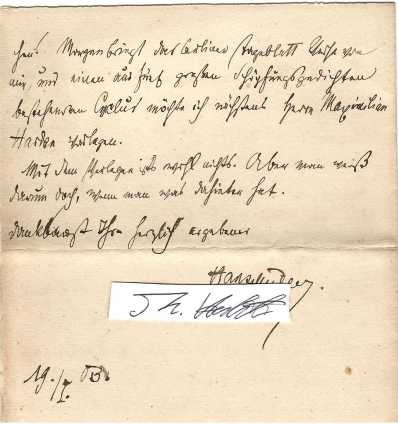 hen. Morgen bringt das Berliner Tageblatt Verse von
mir, und einen aus fünf großen Schöpfungsgedichten
bestehenden Cyclus möchte ich nächstens Herrn Maximilian
Harden vorlegen.
Mit dem Verlegen ists wohl nichts. Aber man weiß
darum doch, wenn man was dahinter hat.
dankbarst Ihr herzlich ergebener
19./I. 03.